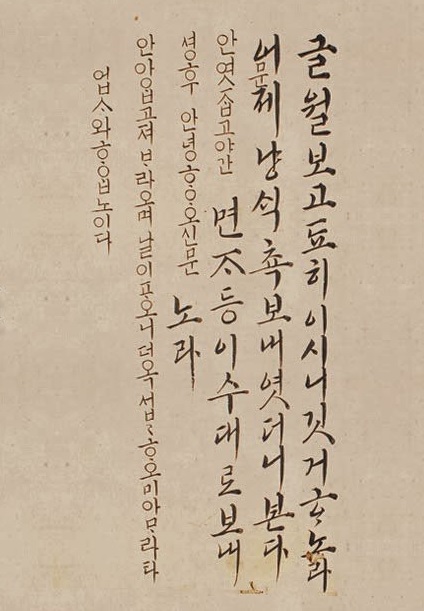 글월 보고 됴히 이시니 깃거ᄒᆞ노라
어제 냥 ᄉᆡᆨ 쵹 보내엿더니 본다
면ᄌᆞ등 이 수대로 보내
노라
문
안 엿ᄌᆞᆸ고 야간
셩후 안녕ᄒᆞᄋᆞ오신 문
안 아ᄋᆞᆸ고져 ᄇᆞ라오며 날이 포 오니 더옥 섭섭ᄒᆞ오미 아ᄆᆞ라타
업ᄉᆞ와 ᄒᆞᄋᆞᆸ노이다